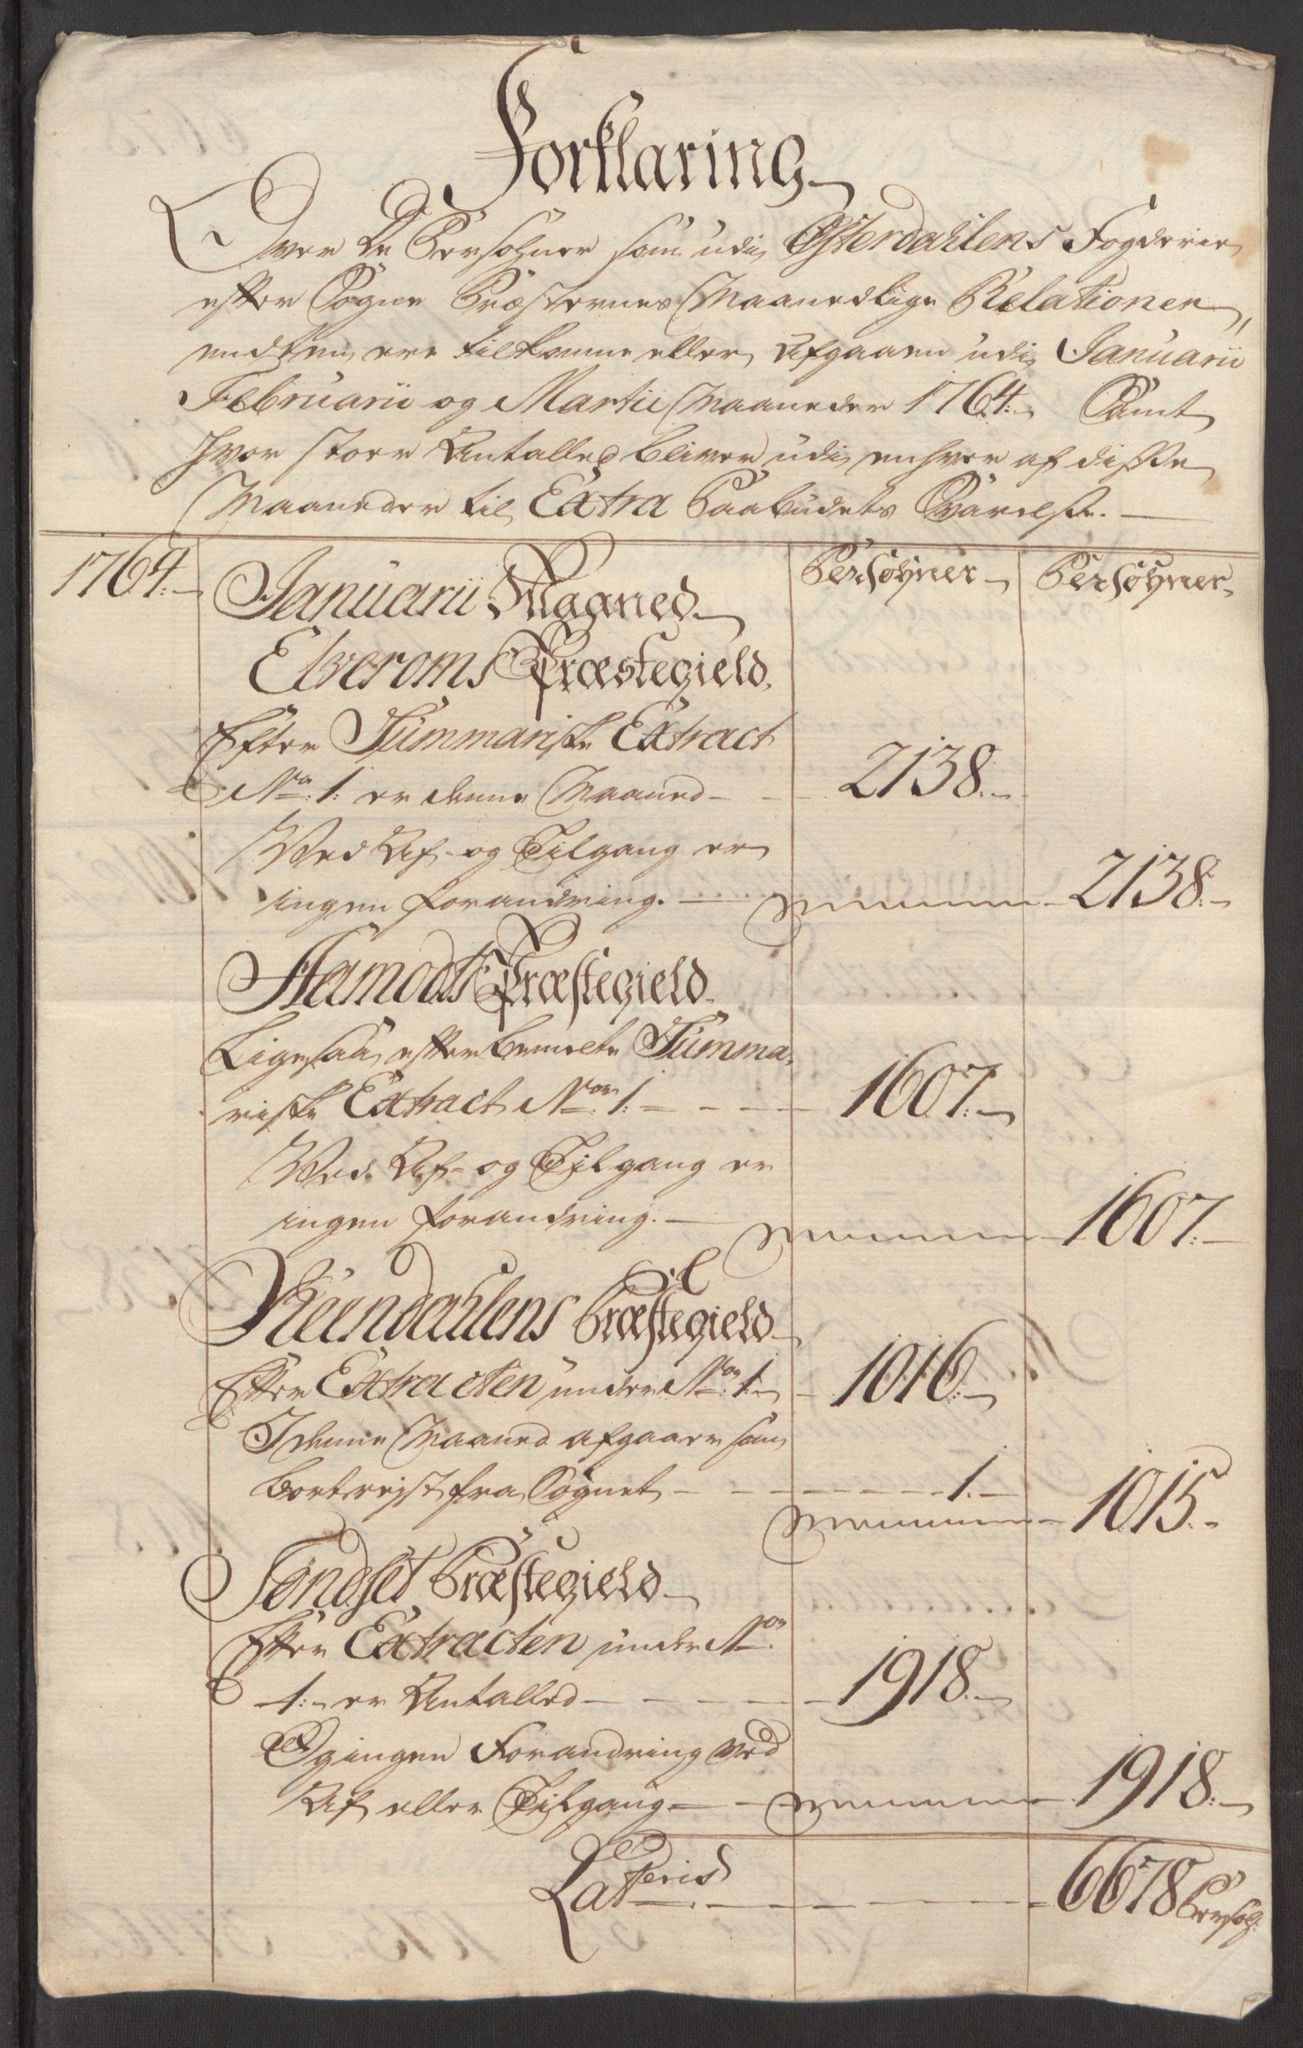 Forklaring
Over De Persohner som udi Østerdahlens Fogderie
efter Sogne Præsternes Maanedlige Relationer,
endten ere tilkomne eller Afgaaen udi Januarii
Februarii og Martii Maaneder 1764. Samt
hvor stoer Antalled bliver udi enhver af disse
Maaneder til Extra Paabudets Svarelse.
1764. Januarii Maaned Persohner Persohner
Elveroms Præstegield
Efter Summariske Extract
No. 1. er denne Maaned 2138.
Ved Af- og Tilgang er
ingen forandring. 2138.
Aamodts Præstegield
Ligesaa efter bemelte Summa-
riske Extract No. 1. 1607.
Ved Af- og Tilgang er
ingen forandring. 1607.
Reindahlens Præstegield
Efter Extracten under No. 1. 1016.
I denne Maaned afgaaer som
bortrejst fra Sognet 1. 1015.
Tøndset Præstegield
Efter Extracten under No.
1. er Antalled 1918.
Og ingen Forandring ved
Af eller Tilgang 1918.
Lateris 6678 Persoh: